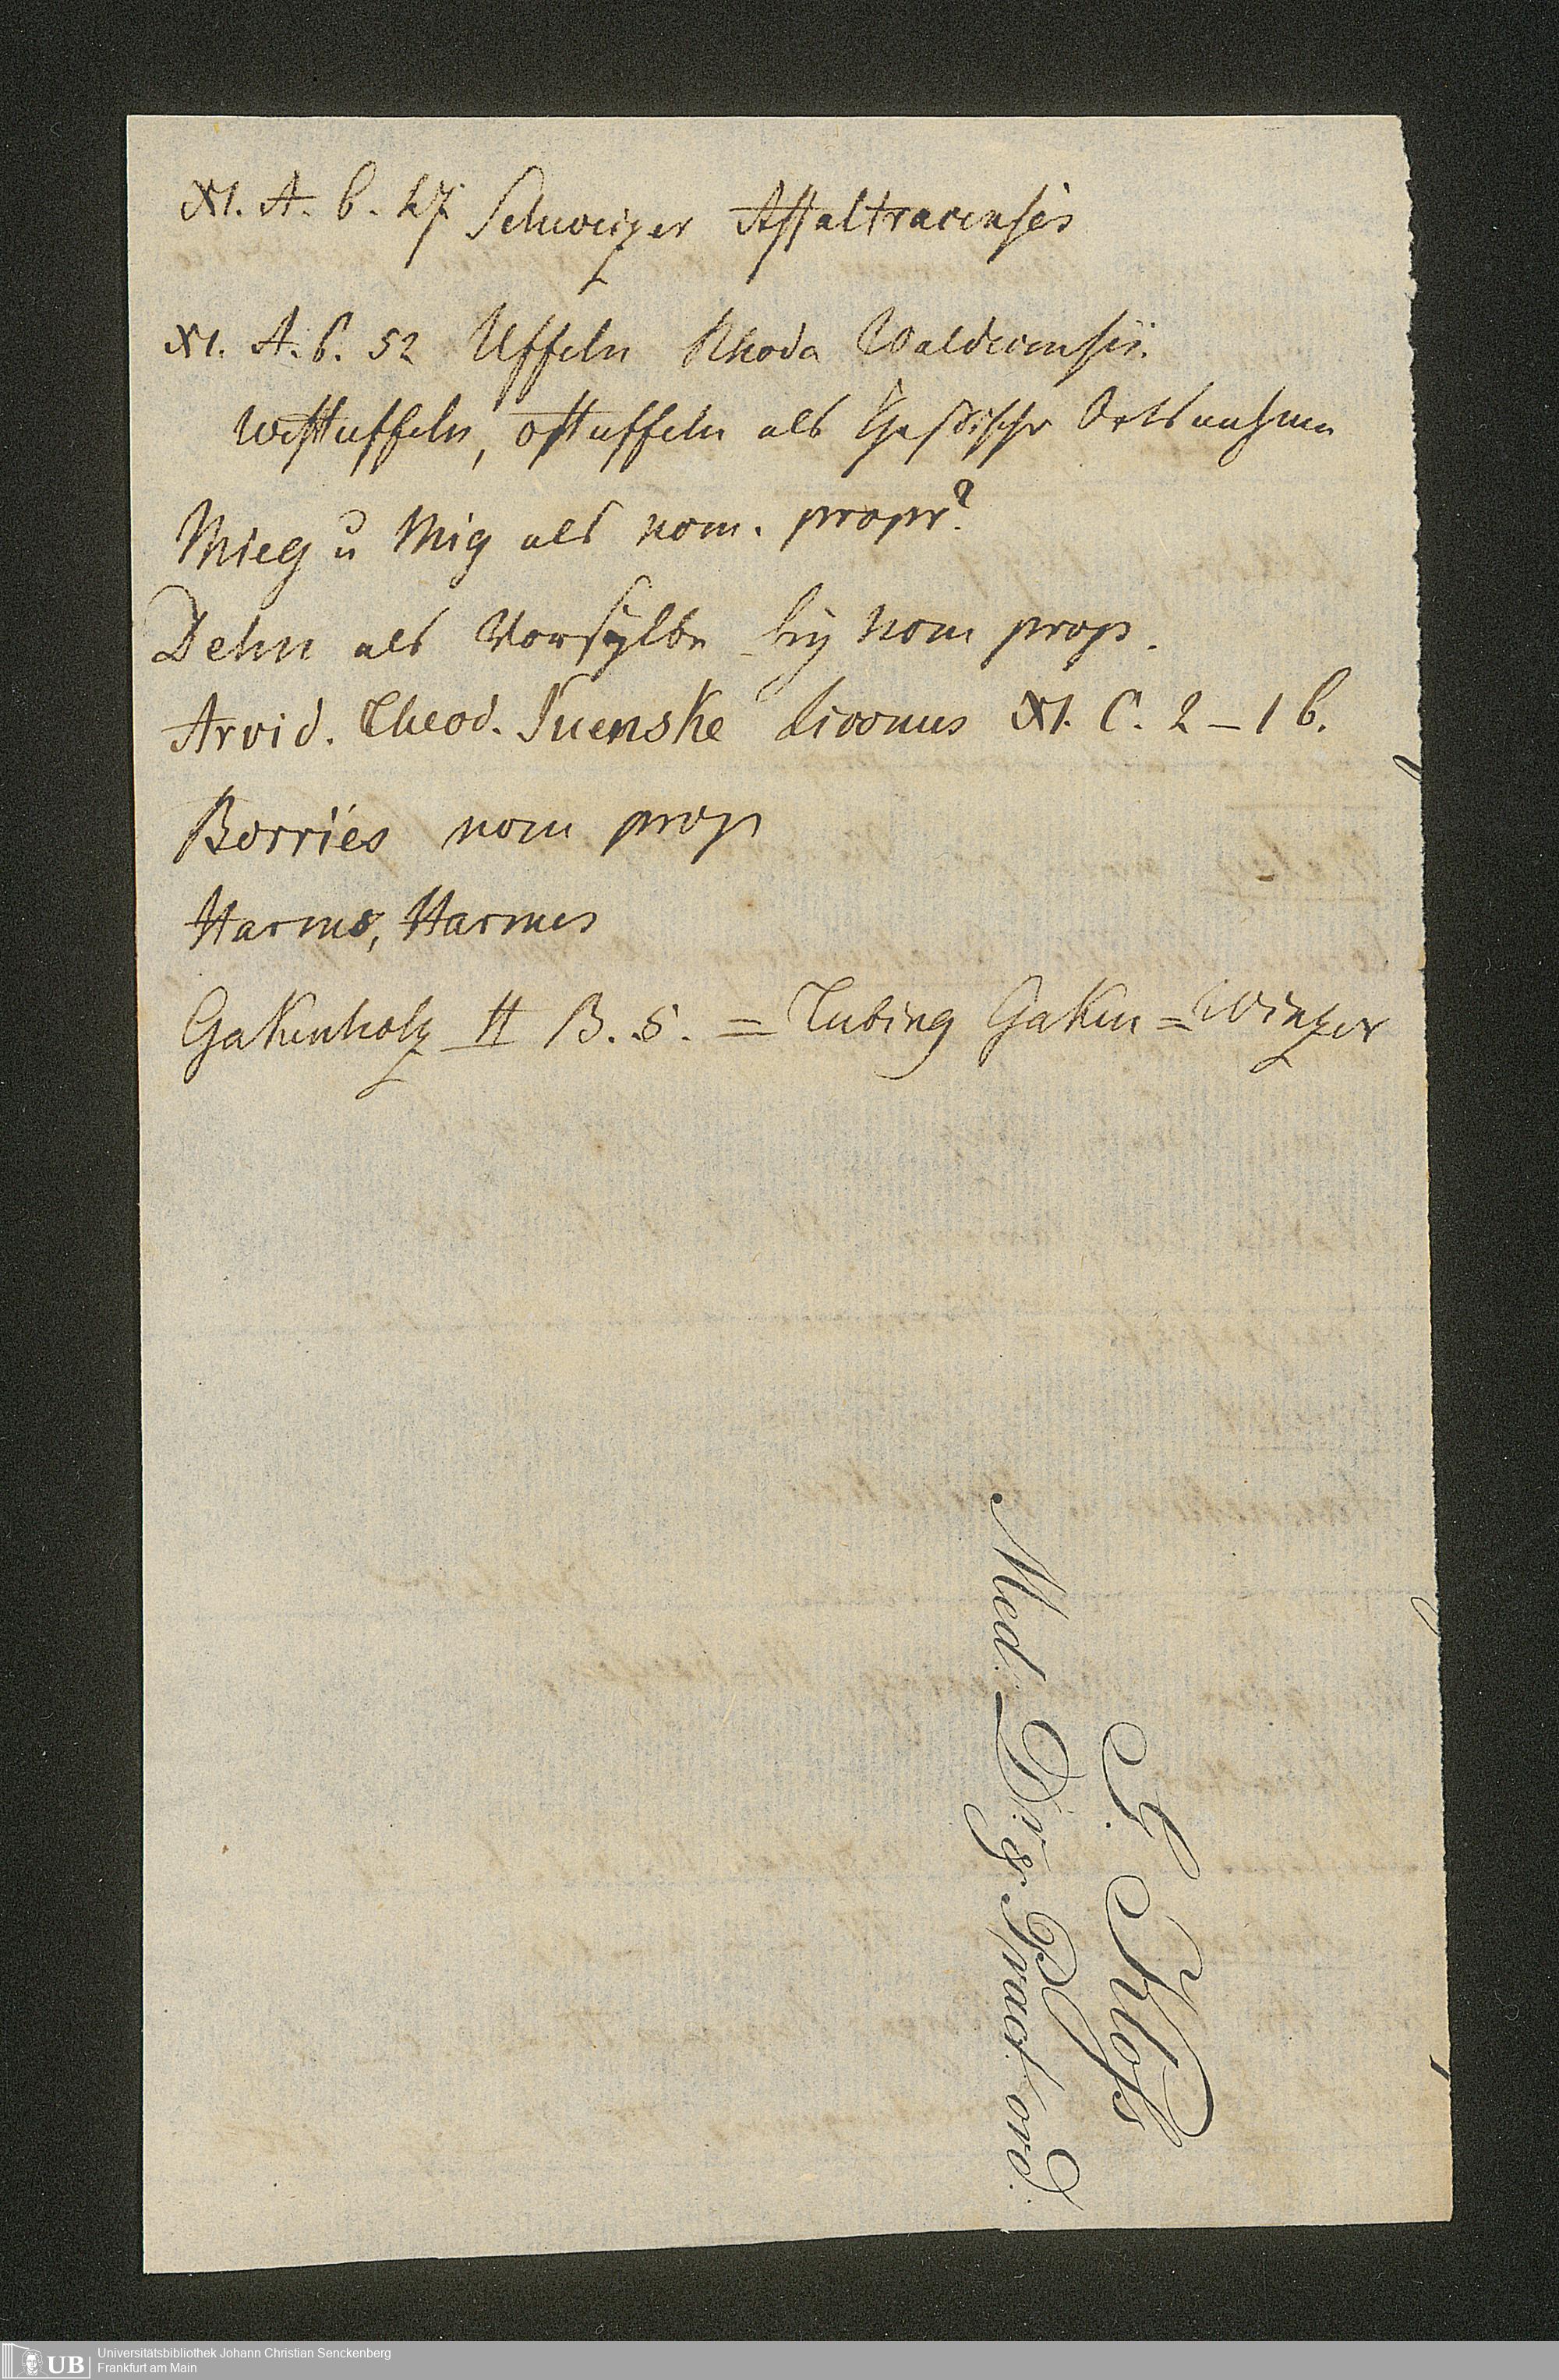 XI. A. b. 27. Schweizer Affaltracensis
XI. A. b. 52 Uffeln Rhoda Waldecensis.
Westuffeln, Ostuffeln als Hessische Ortsnahmen
Mieg u Mig als nom. propr?
Dehn als Vorsylbe bey nom prop.
Arvid. Theod. Suenske Livonus XI. C. 2 – 1 b.
Borries nom prop
Harms, Harmes
Gakenholz II B. 5. = Tubing Gaken = Winzer
G. Kloß
Med. Dr. & Pract. ord.
Universitätsbibliothek Johann Christian Senckenberg
Frankfurt am Main
UB